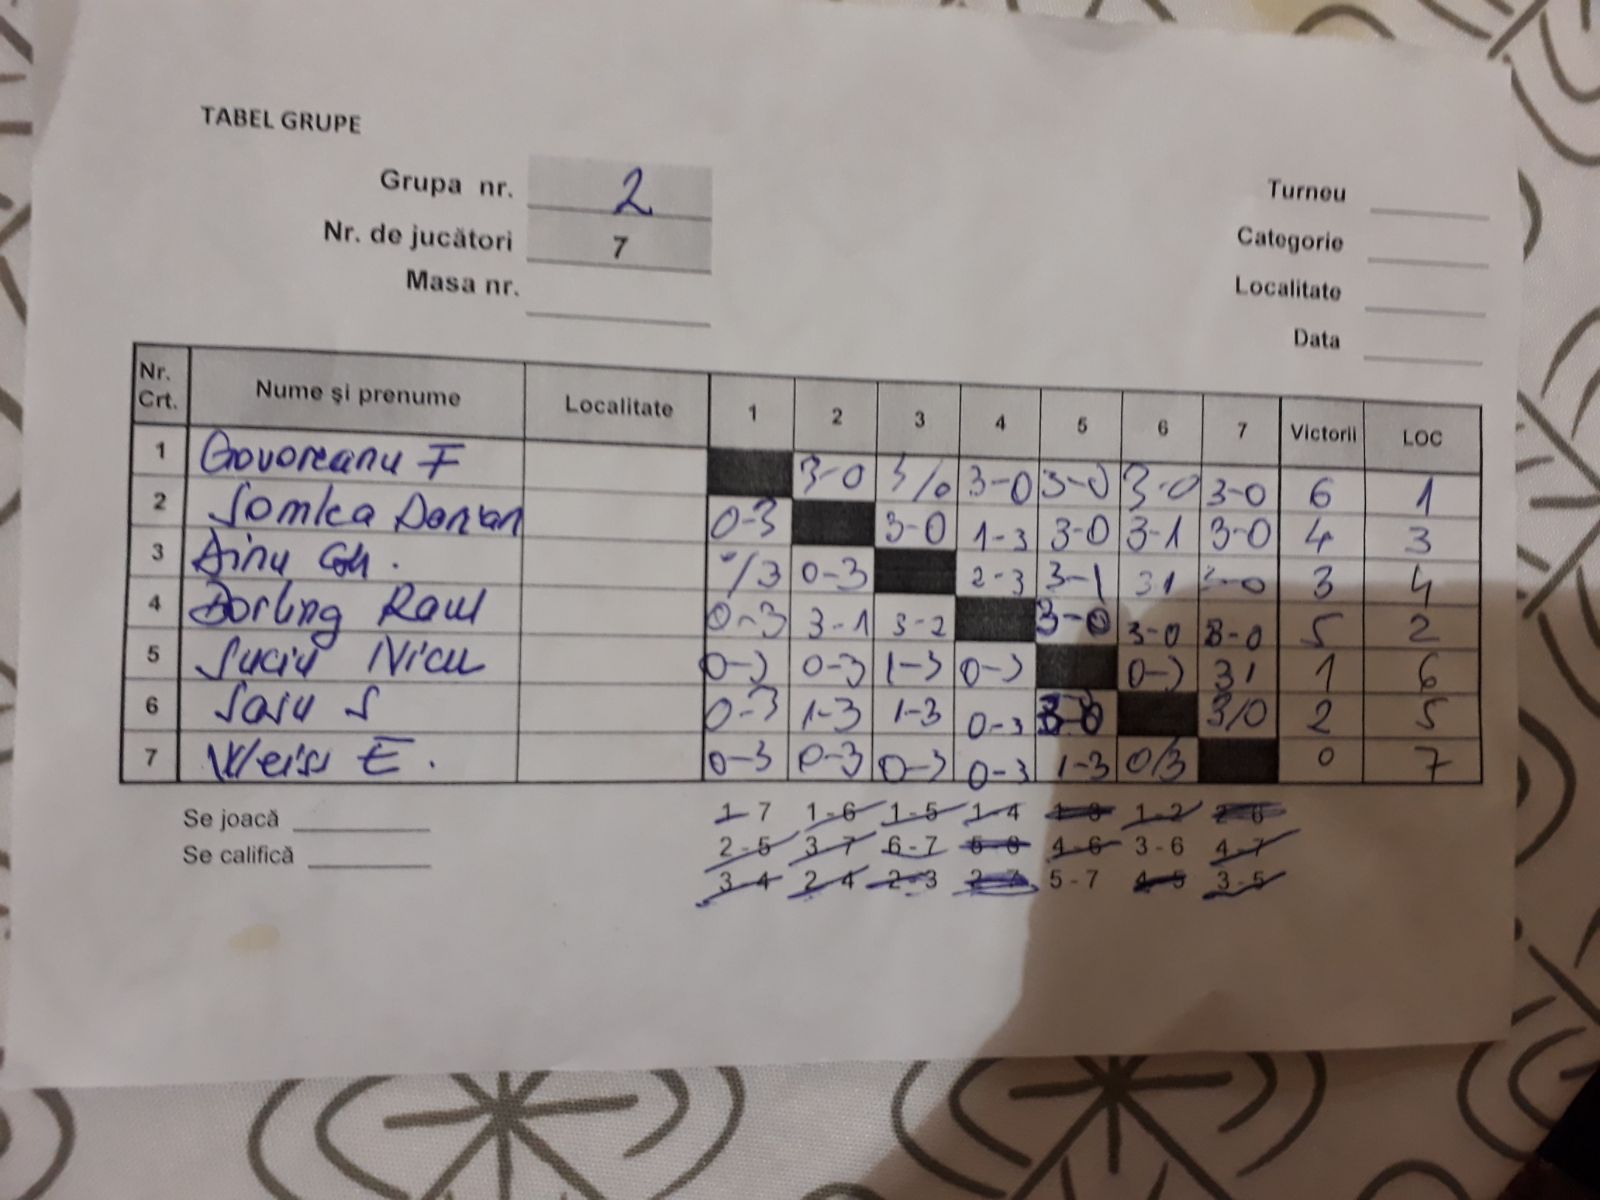 TABEL GRUPE
Grupa nr. 2
Nr. de jucători 7
Masa nr.
Turneu
Categorie
Localitate
Data
Nr. Crt. Nume și prenume Localitate 1 2 3 4 5 6 7 Victorii LOC
1 Govoreanu F 3-0 3/0 3-0 3-0 3-0 3-0 6 1
2 Somlea Dorian 0-3 3-0 1-3 3-0 3-1 3-0 4 3
3 Dinu Gh. 0/3 0-3 2-3 3-1 31 3-0 3 4
4 Dorling Raul 0-3 3-1 3-2 3-0 3-0 3-0 5 2
5 Suciu Nicu 0-3 0-3 1-3 0-3 0-3 31 1 6
6 Sasu S 0-3 1-3 1-3 0-3 3-0 3/0 2 5
7 Weiss E. 0-3 0-3 0-3 0-3 1-3 0/3 0 7
Se joacă
Se califică
1-7 1-6 1-5 1-4 1-3 1-2 2-6
2-5 3-7 6-7 5-6 4-6 3-6 4-7
3-4 2-4 2-3 2-7 5-7 4-5 3-5